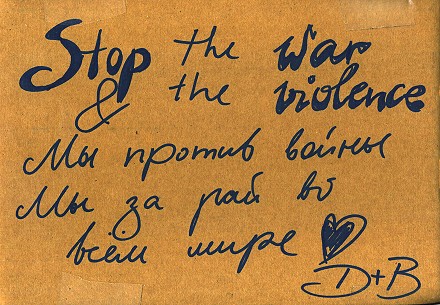 Stop the war
& the violence
Мы против войны
Мы за рай во
всём мире
D+B